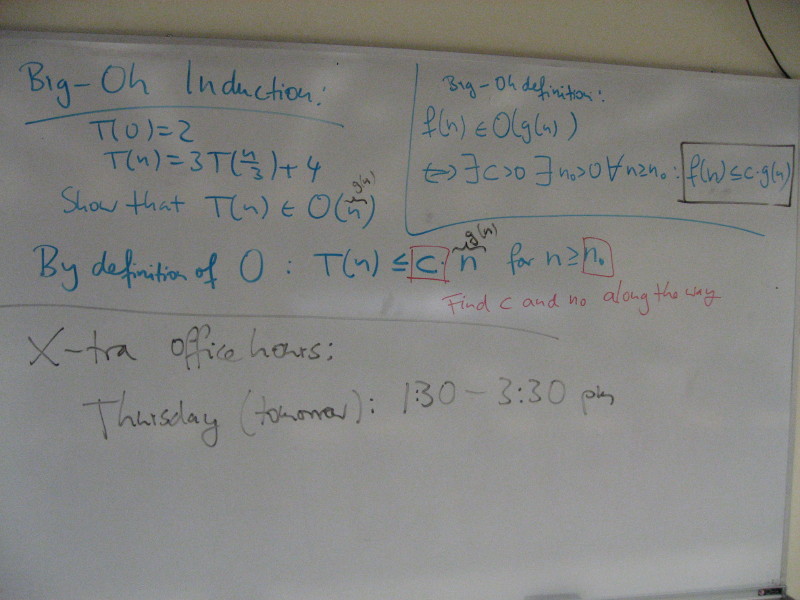 Big-Oh Induction:
T(0)=2
T(n)=3T(n/3)+4
Show that T(n) ∈ O(n) g(n)
Big-Oh definition:
f(n) ∈ O(g(n))
⇔ ∃ c>0 ∃ n₀>0 ∀ n≥n₀: f(n) ≤ c·g(n)
By definition of O: T(n) ≤ c· n g(n) for n≥n₀
Find c and n₀ along the way
X-tra office hours:
Thursday (tomorrow): 1:30 – 3:30 pm